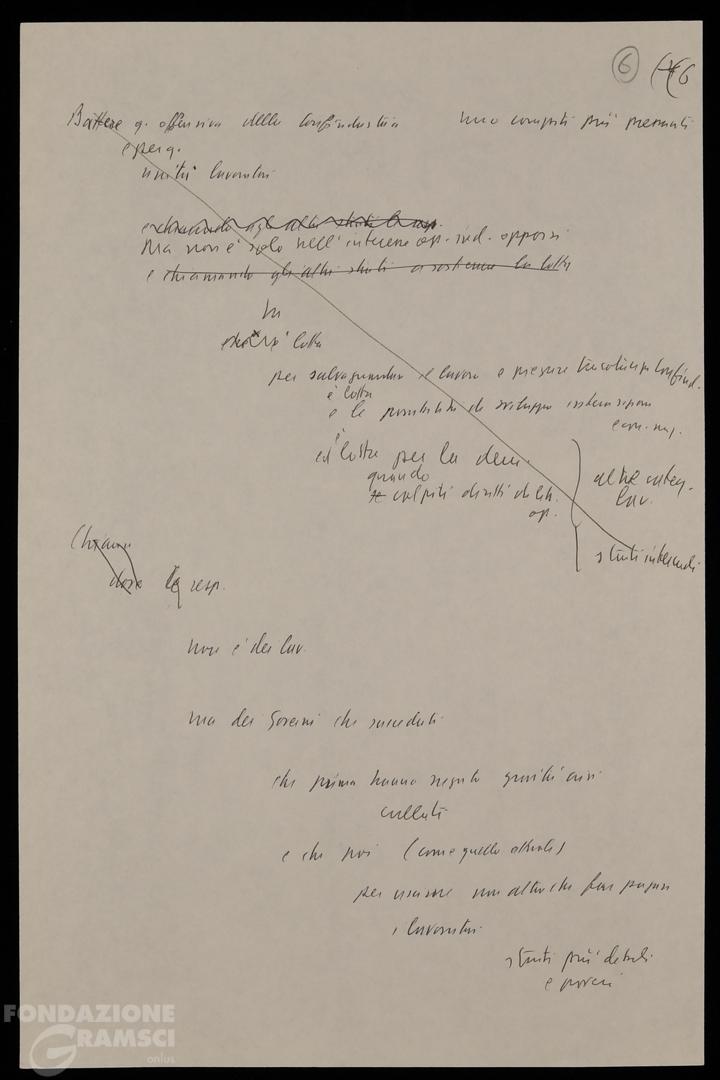 6
Battere q. offensiva della Confindustria uno compiti più pressanti
e per q.
unità lavoratori
e chiamando agli altri strati la
Ma non è solo nell'interesse op. ind. opporsi
e chiamando gli altri strati a sostenere la lotta
In
è lotta
per salvaguardare il lavoro e
è lotta
e le possibilità di sviluppo
econ. naz.
è
ed lotta per la dem.
quando
colpiti diritti di lib.
op.
altre categ.
lav.
strati intermedi
Chiama
dove la resp.
non è dei lav.
ma dei Governi che succeduti
che prima hanno negato gravità crisi
cullati
e che poi (come quello attuale)
per uscirne non altro che far pagare
i lavoratori
strati più deboli
e poveri
FONDAZIONE
GRAMSCI
onlus